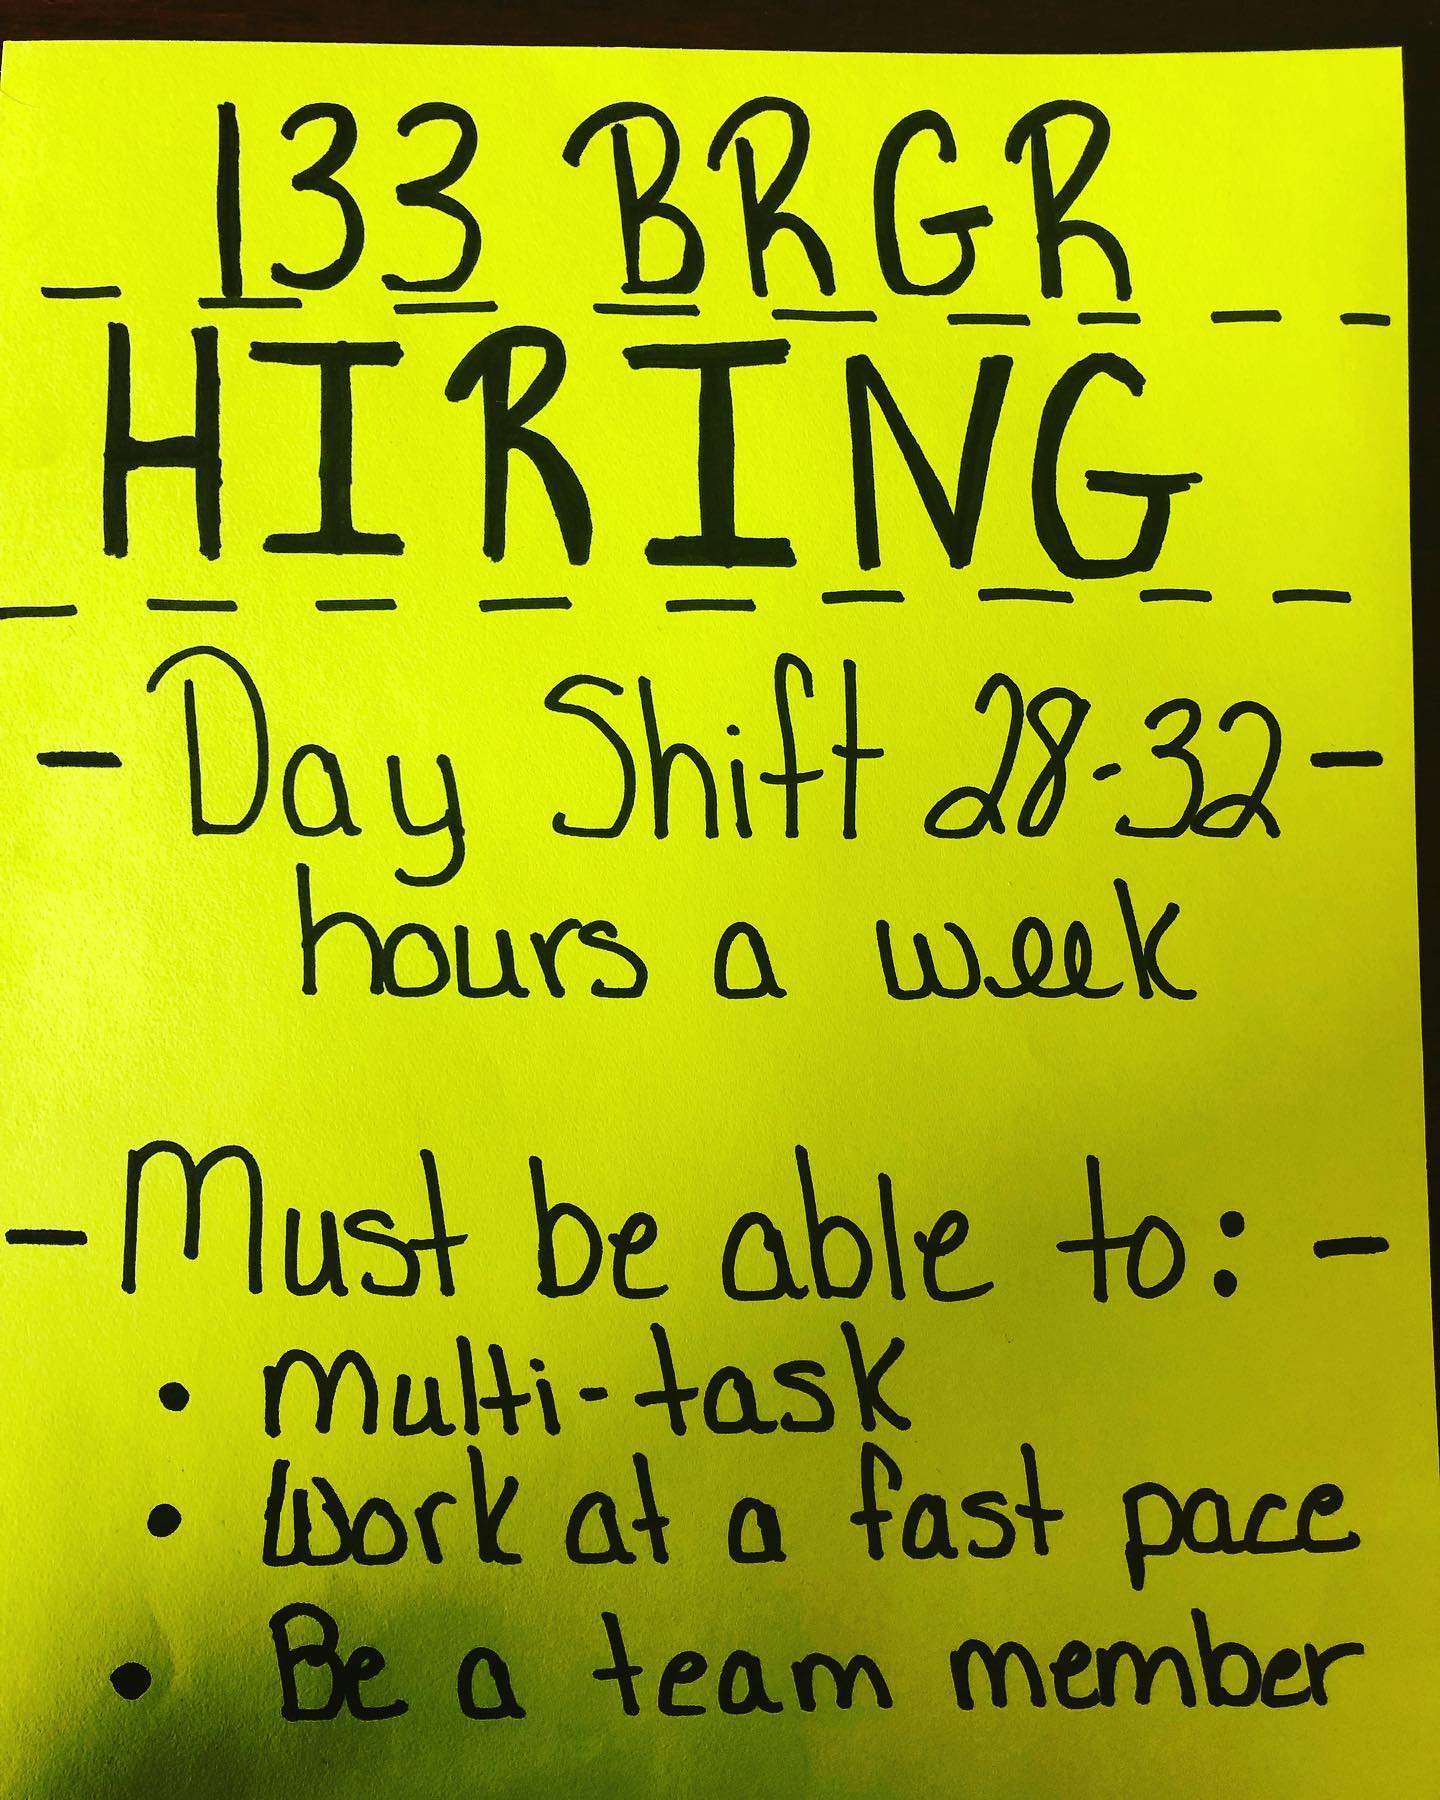 133 BRGR
HIRING
- Day Shift 28-32 -
hours a week
- Must be able to: -
• multi-task
• Work at a fast pace
• Be a team member